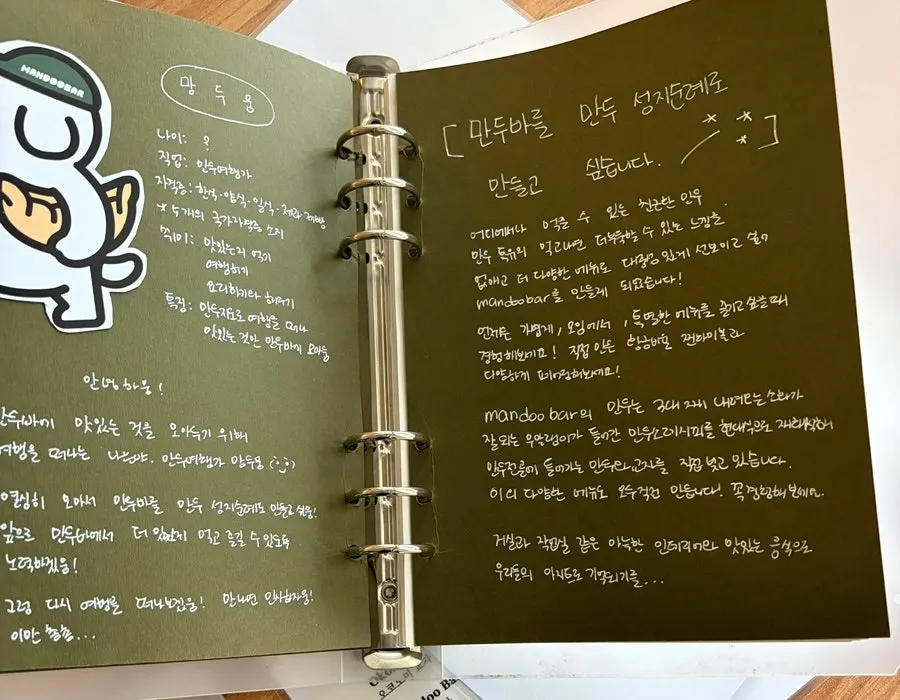 MANDOOBAR
망두웅
나이: ?
직업: 만두여행가
자격증: 한식·양식·일식·제과 제빵
* 5개의 국가자격증 소지
취미: 맛있는거 먹기
여행하기
요리하기와
특징: 만두지도로 여행을 떠나
맛있는 것만 만두바에 모아둠
안녕하웅!
만두바에 맛있는 것을 모아두기 위해
여행을 떠나는 나는야. 만두여행가 망두웅
열심히 모아서 만두바를 만두 성지순례로 만들고 싶웅!
앞으로 만두바에서 더 맛있는거 먹고 즐길 수 있도록
노력하겠웅!
그럼 다시 여행을 떠나보겠웅! 만나면 인사하자웅!
이만 총총...
[만두바를 만두 성지순례로
만들고 싶습니다.]
어디에서나 먹을 수 있는 친근한 만두
만두 특유의 먹고나면 더부룩할 수 있는 느낌을
없애고 더 다양한 메뉴로 대중성있게 선보이고 싶어
mandoobar를 만들게 되었습니다!
언제든 가볍게, 모임에서, 특별한 메뉴를 즐기고 싶을때
경험해보세요! 직접 만든 한남바포 전하이볼과
다양하게 페어링해보세요!
mandoobar의 만두는 3대째 내려오는 소화가
잘되는 우엉이 들어간 만두소 레시피를 현대식으로 재해석해
만두전골에 들어가는 만두와 교자를 직접 빚고 있습니다.
이외 다양한 메뉴도 모두 직접 만듭니다! 꼭 경험해보세요.
거실과 작업실 같은 아늑한 인테리어와 맛있는 음식으로
우리들의 아지트로 기억되기를...